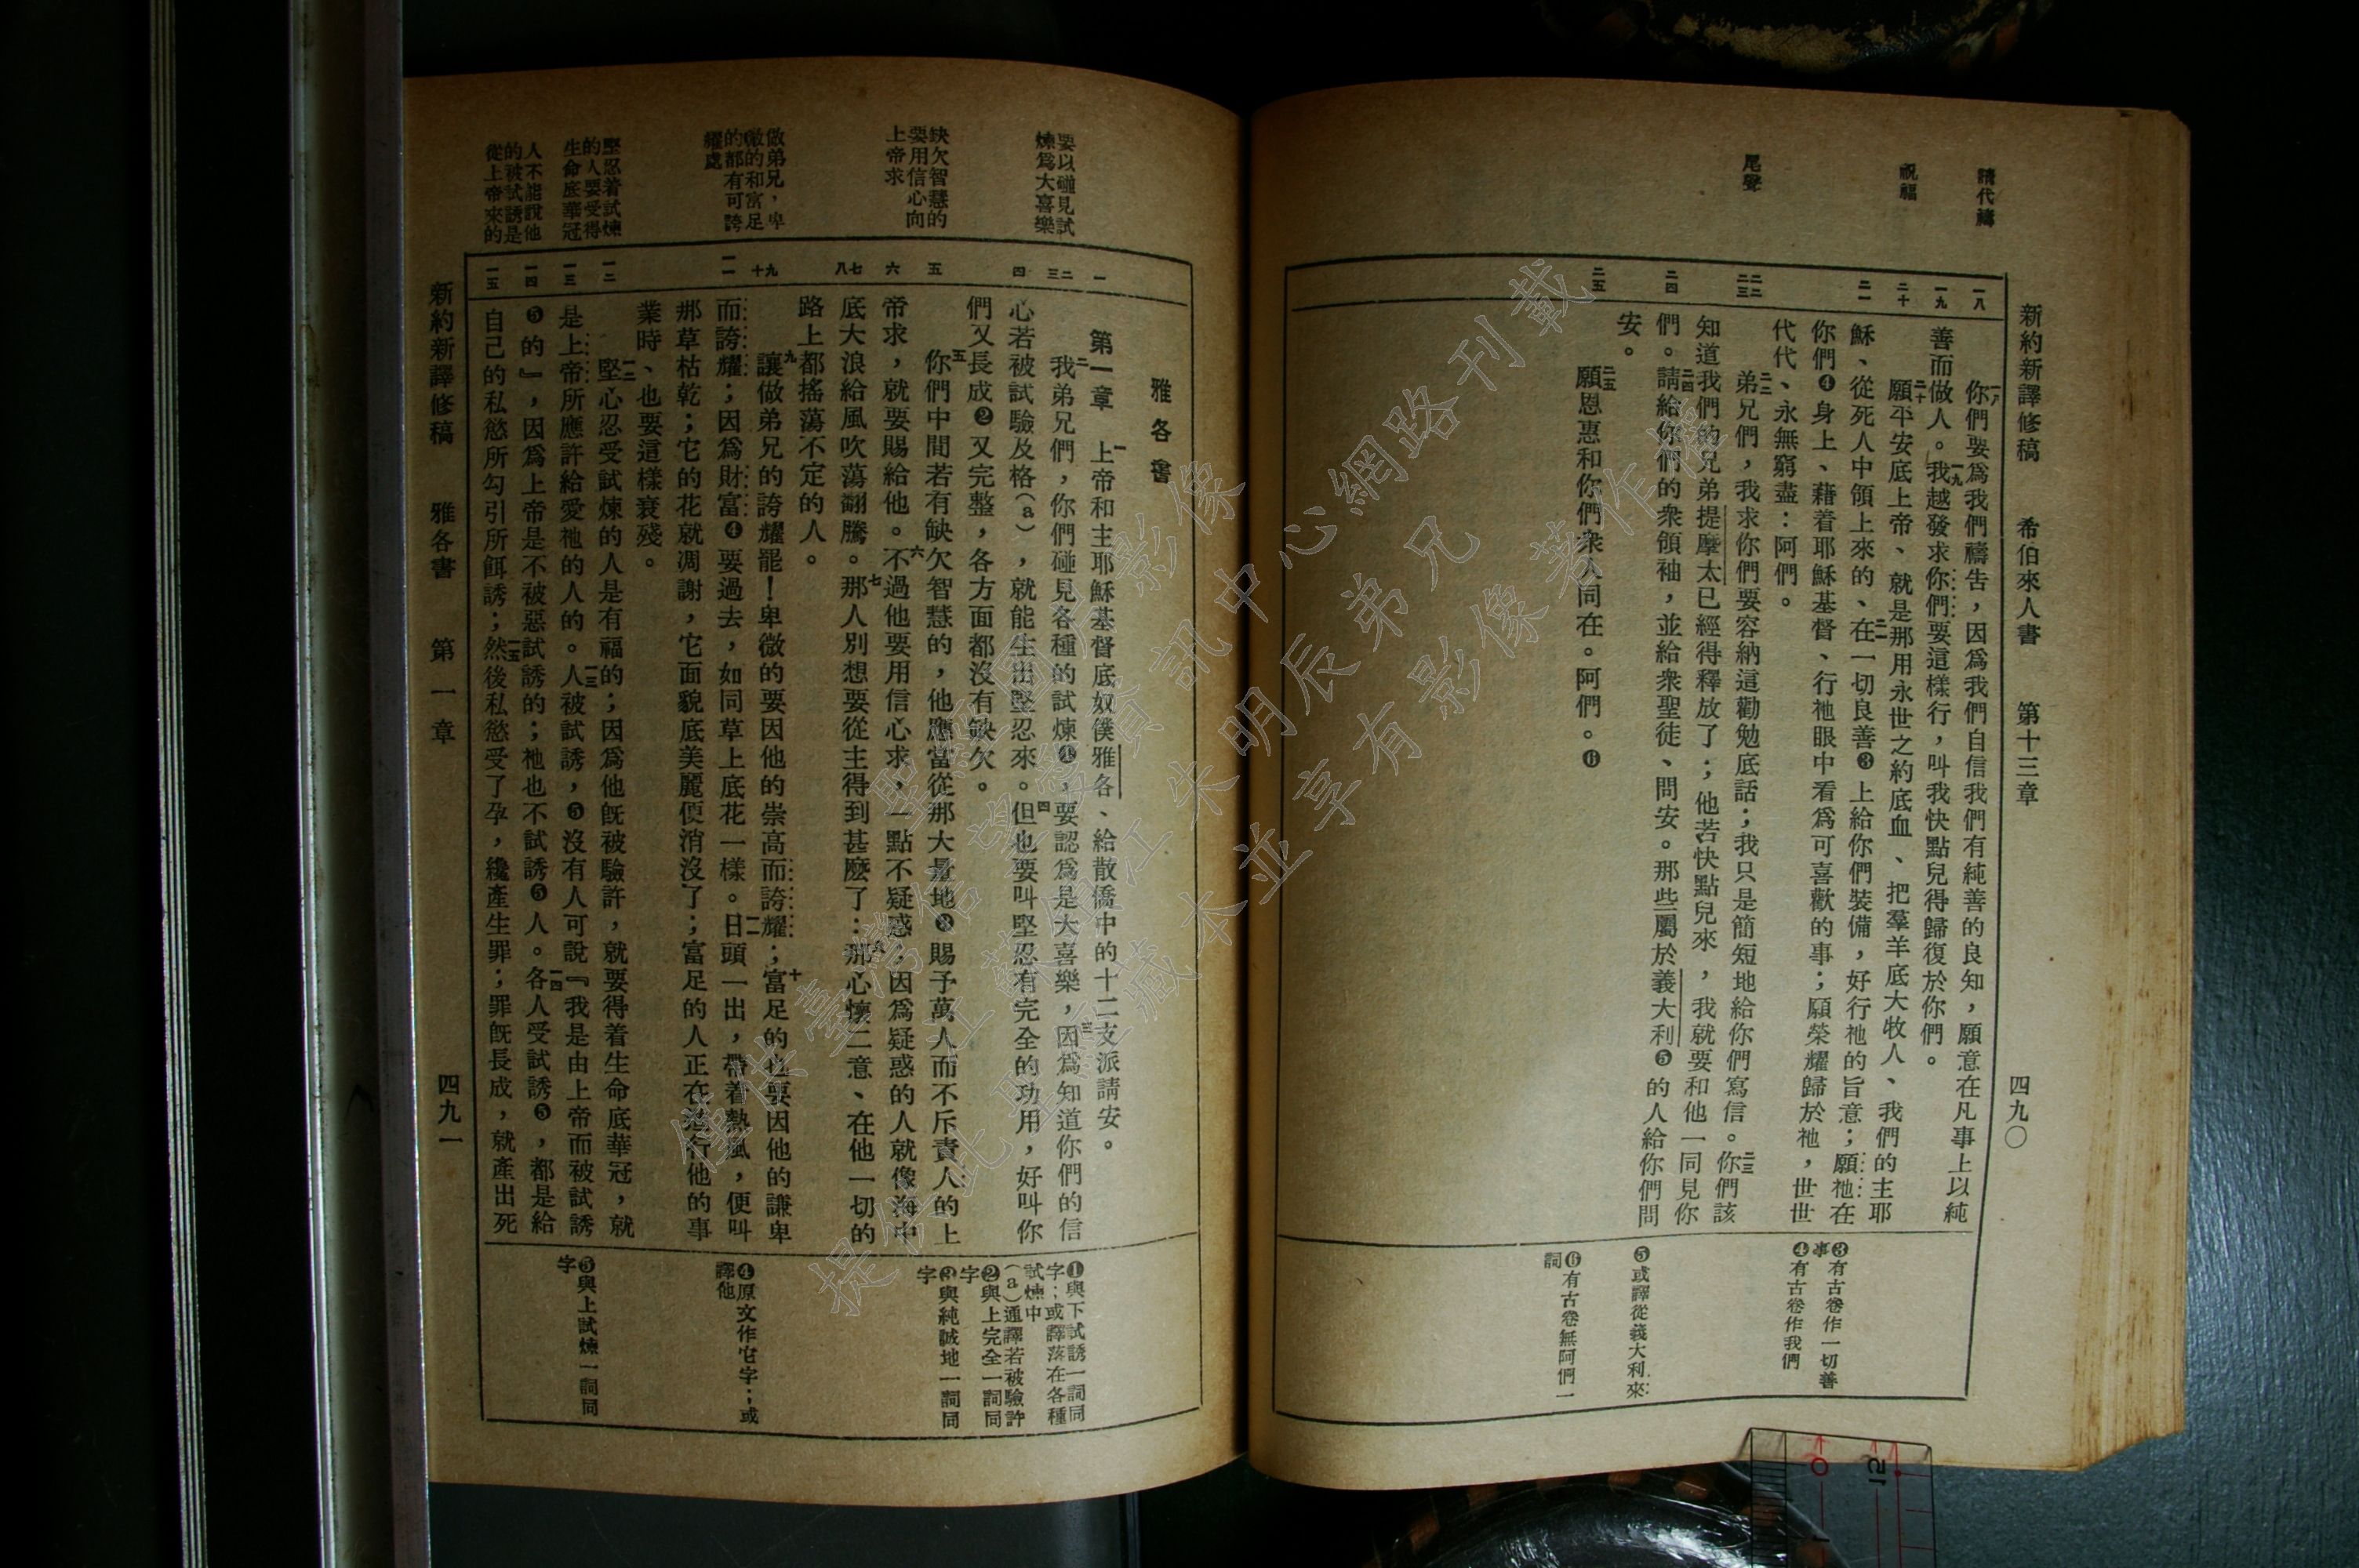 新約新譯修稿　希伯來人書　第十三章　四九〇
請代禱
祝福
尾聲
一八
一九
二十
二一
二二
二三
二四
二五
一八你們要爲我們禱告，因爲我們自信我們有純善的良知，願意在凡事上以純
善而做人。一九我越發求你們要這樣行，叫我快點兒得歸復於你們。
二十願平安底上帝、就是那用永世之約底血、把羣羊底大牧人、我們的主耶
穌、從死人中領上來的、二一在一切良善❸上給你們裝備，好行祂的旨意；願祂在
你們❹身上、藉着耶穌基督、行祂眼中看爲可喜歡的事；願榮耀歸於祂，世世
代代、永無窮盡：阿們。
二二弟兄們，我求你們要容納這勸勉底話；我只是簡短地給你們寫信。二三你們該
知道我們的兄弟提摩太已經得釋放了；他若快點兒來，我就要和他一同見你
們。二四請給你們的衆領袖，並給衆聖徒、問安。那些屬於義大利❺的人給你們問
安。
二五願恩惠和你們衆人同在。阿們。❻
❸有古卷作一切善
事
❹有古卷作我們
❺或譯從義大利來
❻有古卷無阿們一
詞
要以碰見試
煉爲大喜樂
缺欠智慧的
要用信心向
上帝求
做弟兄，卑
微的和富足
的都有可誇
耀處
堅忍着試煉
的人要受得
生命底華冠
人不能說他
的被試誘是
從上帝來的
一
二
三
四
五
六
七
八
九
十
一一
一二
一三
一四
一五
雅各書
第一章　一上帝和主耶穌基督底奴僕雅各、給散僑中的十二支派請安。
二我弟兄們，你們碰見各種的試煉❶，要認爲是大喜樂，三因爲知道你們的信
心若被試驗及格（a），就能生出堅忍來。四但也要叫堅忍有完全的功用，好叫你
們又長成❷又完整，各方面都沒有缺欠。
五你們中間若有缺欠智慧的，他應當從那大量地❸賜予萬人而不斥責人的上
帝求，就要賜給他。六不過他要用信心求，一點不疑惑；因爲疑惑的人就像海中
底大浪給風吹蕩翻騰。七那人別想要從主得到甚麼了：八那心懷二意、在他一切的
路上都搖蕩不定的人。
九讓做弟兄的誇耀罷！卑微的要因他的崇高而誇耀；十富足的也要因他的謙卑
而誇耀；因爲財富❹要過去，如同草上底花一樣。一一日頭一出，帶着熱風，便叫
那草枯乾；它的花就凋謝，它面貌底美麗便消沒了；富足的人正在進行他的事
業時、也要這樣衰殘。
一二堅心忍受試煉的人是有福的；因爲他旣被驗許，就要得着生命底華冠，就
是上帝所應許給愛祂的人的。一三人被試誘，❺沒有人可說『我是由上帝而被試誘
❺的』，因爲上帝是不被惡試誘的；祂也不試誘❺人。一四各人受試誘❺，都是給
自己的私慾所勾引所餌誘；一五然後私慾受了孕，纔產生罪；罪旣長成，就產出死
❶與下試誘一詞同
字；或譯落在各種
試煉中
（a）通譯若被驗許
❷與上完全一詞同
字
❸與純誠地一詞同
字
❹原文作它字；或
譯他
❺與上試煉一詞同
字
新約新譯修稿　雅各書　第一章　四九一
聖經圖片影像
僅供臺灣信望愛資訊中心網路刊載
提供此聖經藏本並享有影像著作權
0
15